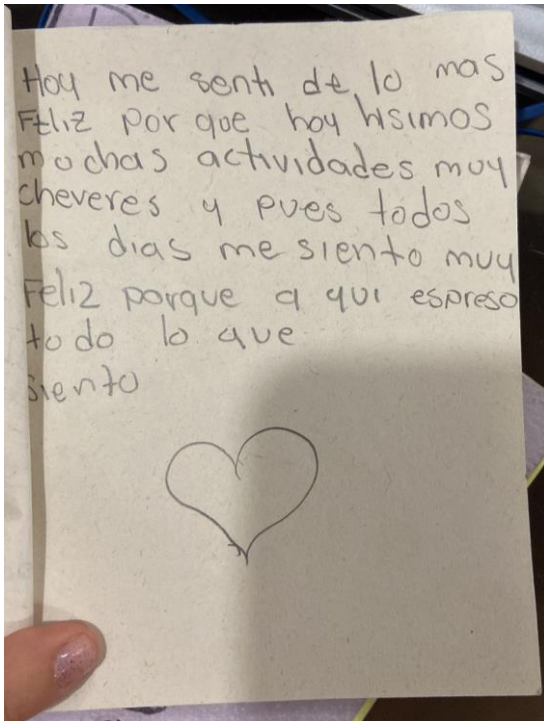 Hoy me senti de lo mas
Feliz por que hoy hisimos
muchas actividades muy
cheveres y pues todos
los dias me siento muy
Feliz porque a qui espreso
todo lo que
siento